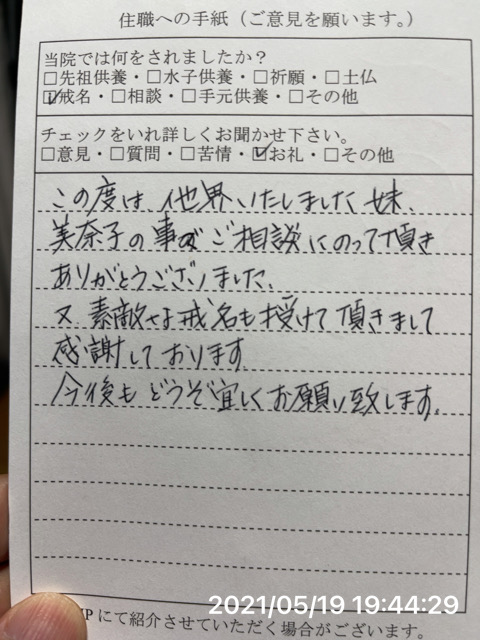 住職への手紙（ご意見を願います。）
当院では何をされましたか？
□先祖供養・□水子供養・□祈願・□土仏
☑戒名・□相談・□手元供養・□その他
チェックをいれ詳しくお聞かせ下さい。
□意見・□質問・□苦情・☑お礼・□その他
この度は、他界いたしました妹、
美奈子の事でご相談にのって頂き
ありがとうございました。
又、素敵な戒名も授けて頂きまして
感謝しております。
今後もどうぞ宜しくお願い致します。
2021/05/19 19:44:29
HPにて紹介させていただく場合がございます。